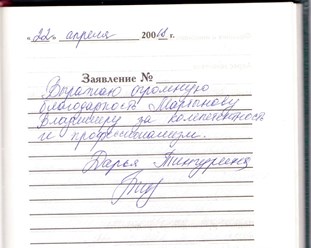 "22" апреля 200 г.
Заявление №
Выражаю огромную
благодарность Мартынову
Владимиру за компетентность
и профессионализм.
Дарья